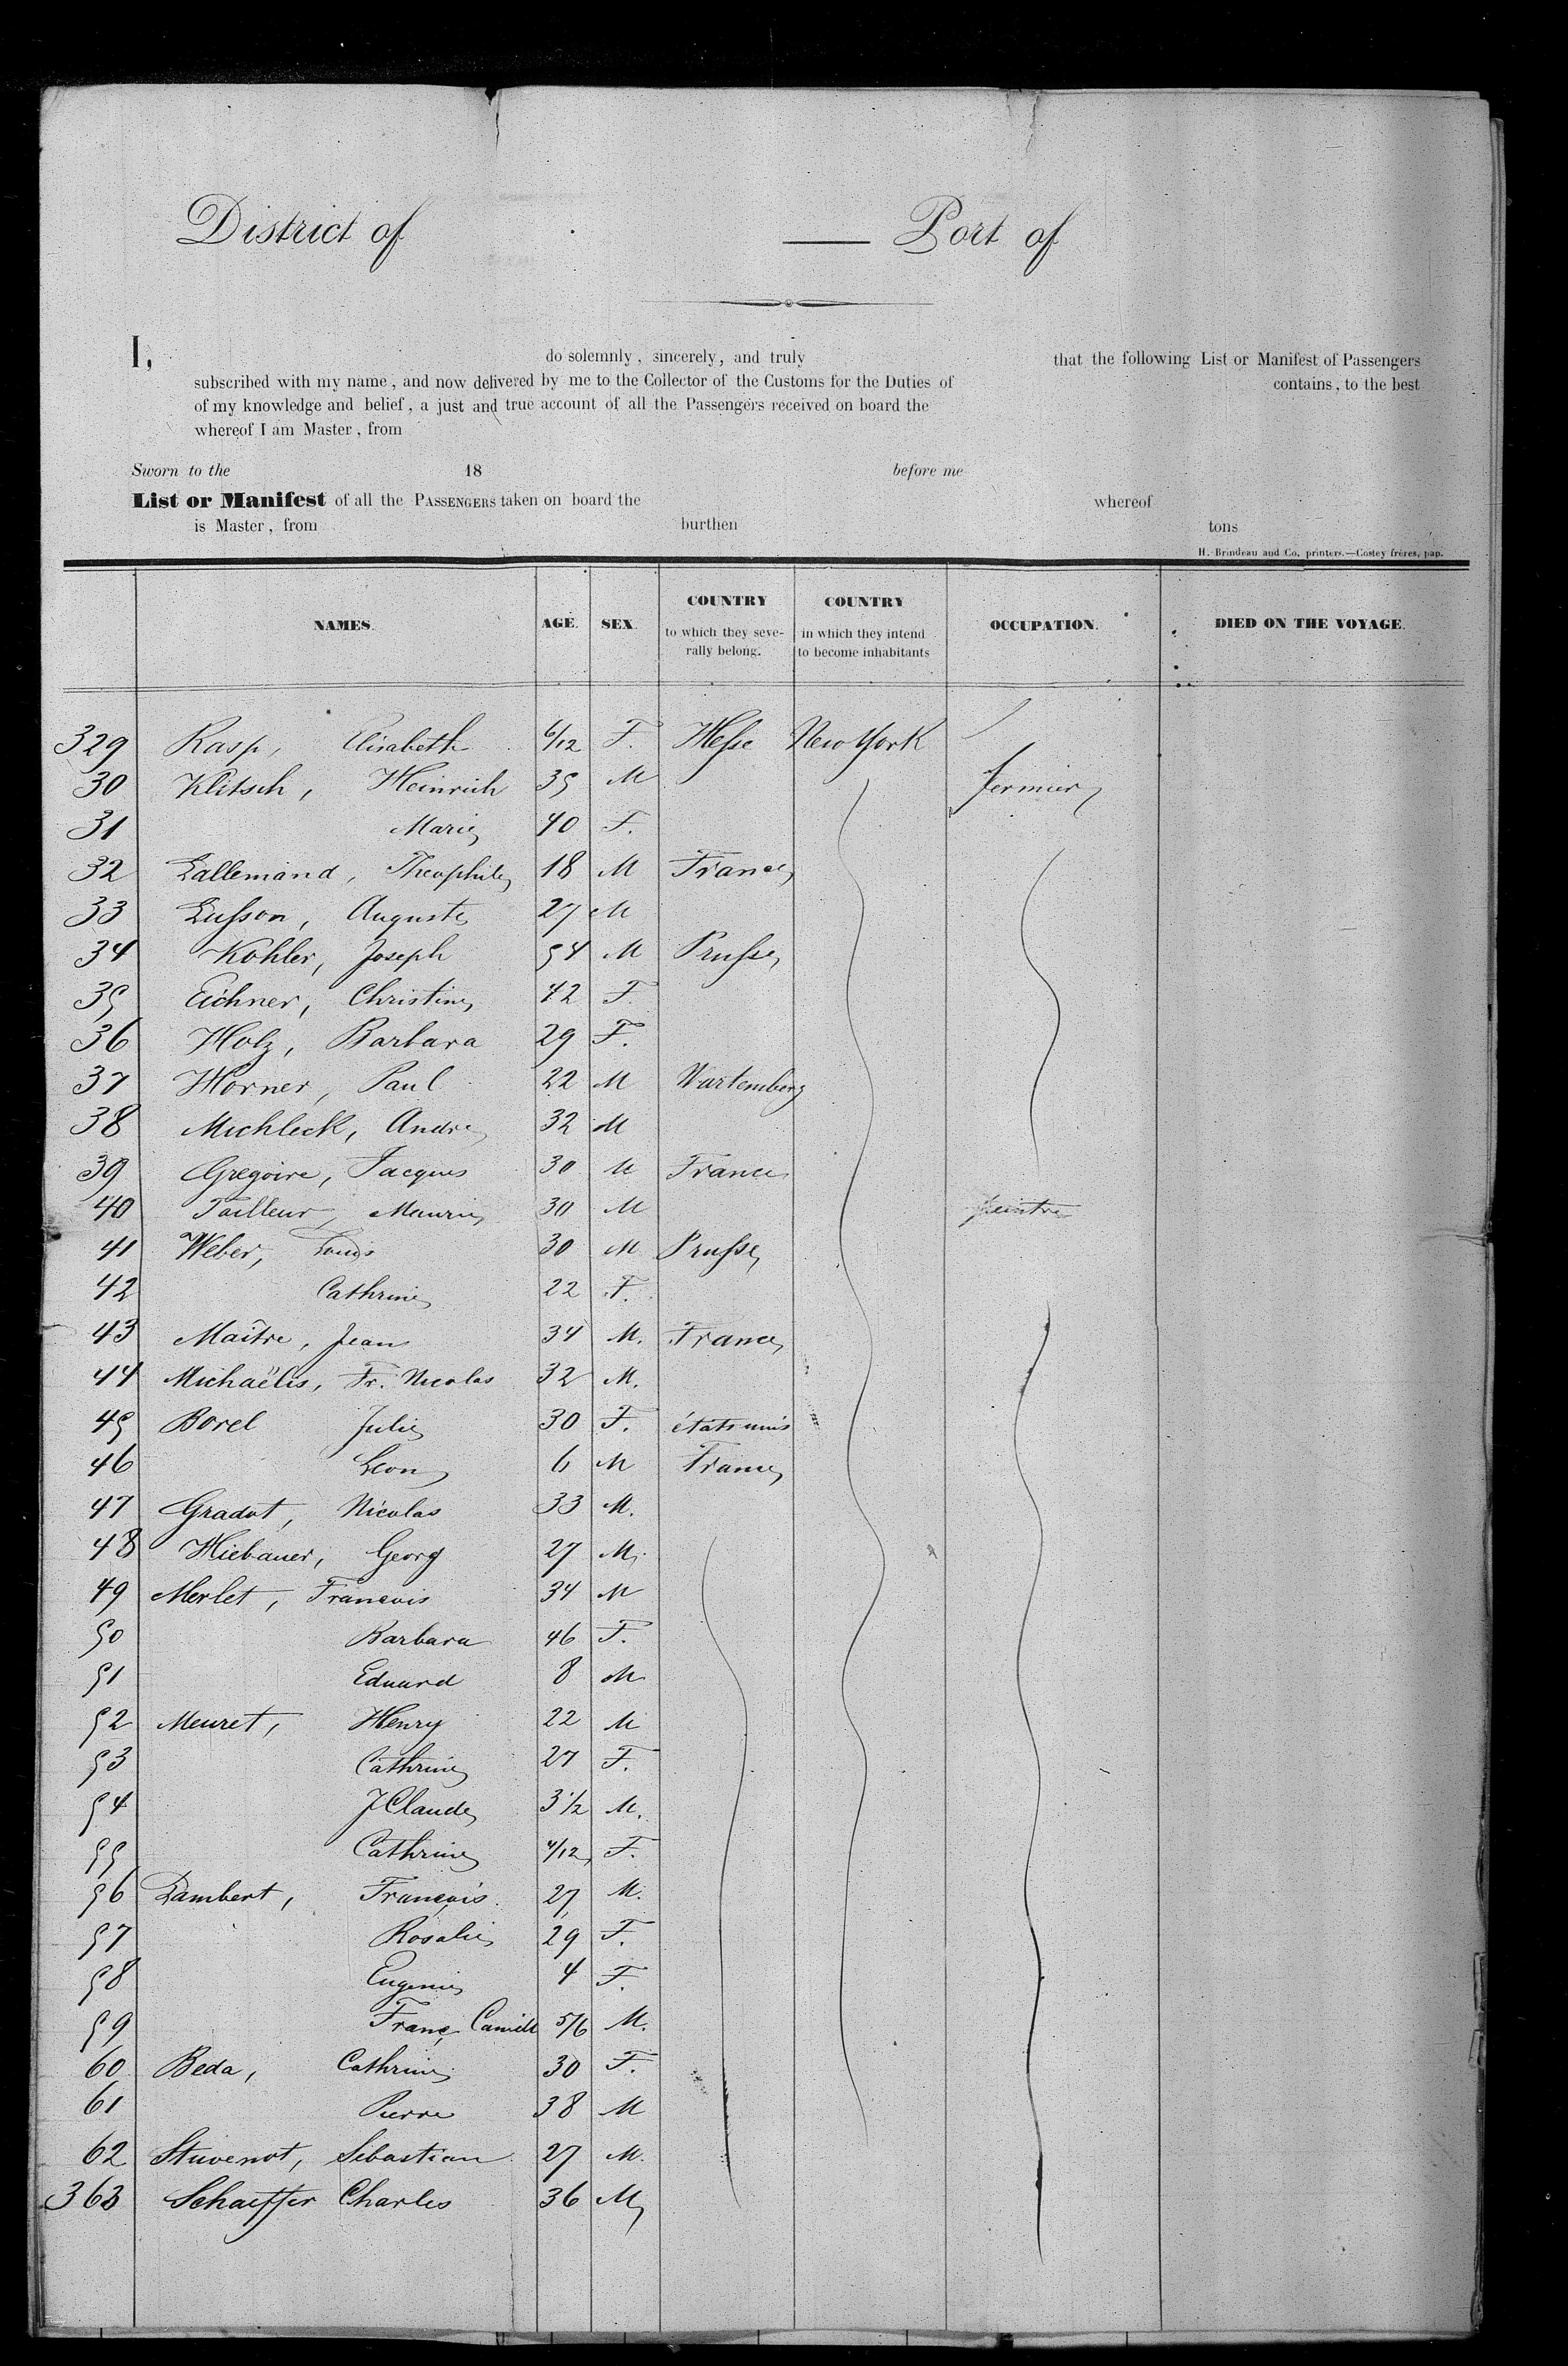 District of — Port of
I, do solemnly, sincerely, and truly that the following List or Manifest of Passengers
subscribed with my name, and now delivered by me to the Collector of the Customs for the Duties of contains, to the best
of my knowledge and belief, a just and true account of all the Passengers received on board the
whereof I am Master, from
Sworn to the 18 before me
List or Manifest of all the PASSENGERS taken on board the whereof
is Master, from burthen tons
H. Brindeau and Co, printers.—Costey frères, pap.
NAMES. AGE. SEX. COUNTRY to which they severally belong. COUNTRY in which they intend to become inhabitants OCCUPATION. DIED ON THE VOYAGE.
329 Rasp, Elisabeth 6/12 F. Hesse New York
30 Klitsch, Heinrich 35 M fermier
31 Marie 40 F.
32 Lallemand, Theophile 18 M France
33 Lusson, Auguste 27 M
34 Kohler, Joseph 54 M Prusse
35 Eichner, Christine 42 F
36 Holz, Barbara 29 F.
37 Horner, Paul 22 M Wurtemberg
38 Michleck, Andre 32 M
39 Gregoire, Jacques 30 M France
40 Tailleur, Maurice 30 M peintre
41 Weber, Louis 30 M Prusse
42 Cathrine 22 F.
43 Maître, Jean 34 M. France
44 Michaëlis, Fr. Nicolas 32 M.
45 Borel Julie 30 F. états unis
46 Leon 6 M France
47 Gradot, Nicolas 33 M.
48 Hiebauer, Georg 27 M.
49 Merlet, Francois 34 M
50 Barbara 46 F.
51 Eduard 8 M
52 Meuret, Henry 22 M
53 Cathrine 27 F.
54 J Claude 3 1/2 M.
55 Cathrine 4/12 F.
56 Lambert, François 27 M.
57 Rosalie 29 F.
58 Eugenie 4 F.
59 Franç Camill 5/6 M.
60 Beda, Cathrine 30 F.
61 Pierre 38 M
62 Stuvenot, Sebastian 27 M.
363 Schaeffer Charles 36 M